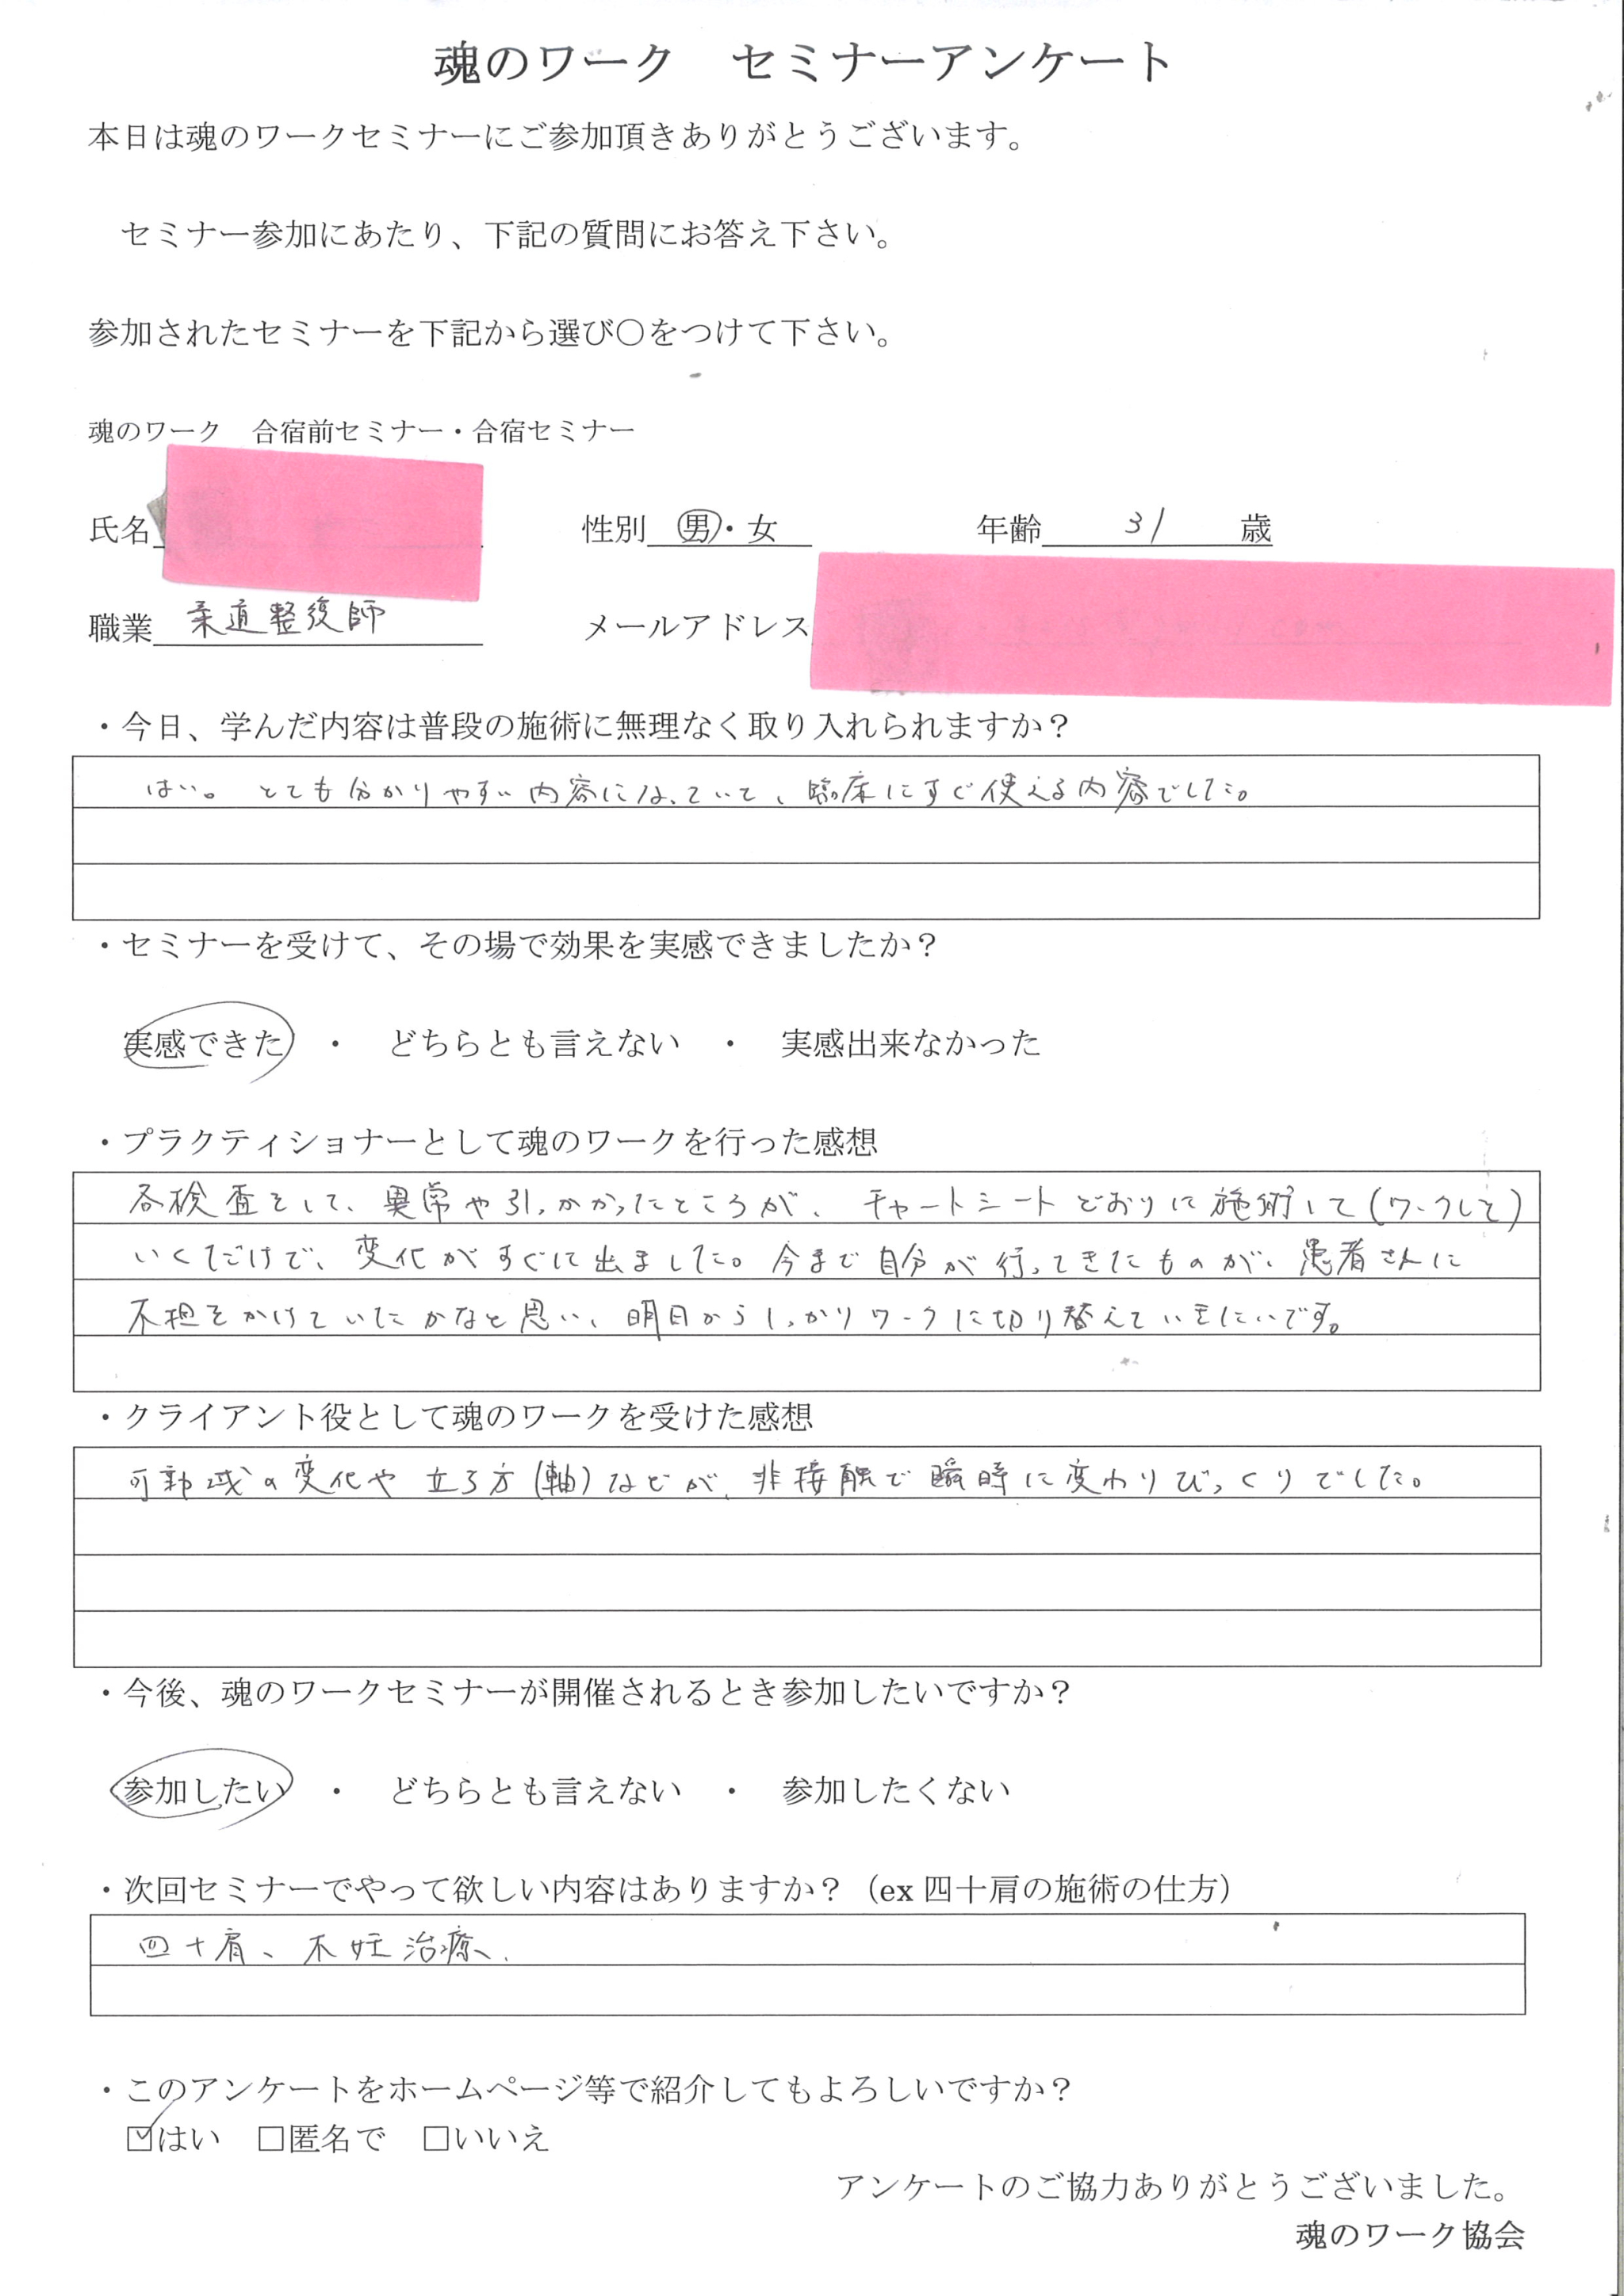 魂のワーク　セミナーアンケート
本日は魂のワークセミナーにご参加頂きありがとうございます。
セミナー参加にあたり、下記の質問にお答え下さい。
参加されたセミナーを下記から選び〇をつけて下さい。
魂のワーク　合宿前セミナー・合宿セミナー
氏名　性別　男・女　年齢　31　歳
職業　柔道整復師　メールアドレス
・今日、学んだ内容は普段の施術に無理なく取り入れられますか？
はい。とても分かりやすい内容になっていて、臨床にすぐ使える内容でした。
・セミナーを受けて、その場で効果を実感できましたか？
実感できた　・　どちらとも言えない　・　実感出来なかった
・プラクティショナーとして魂のワークを行った感想
各検査をして、異常や引っかかったところが、チャートシートどおりに施術して(ワークして)
いくだけで、変化がすぐに出ました。今まで自分が行ってきたものが、患者さんに
不担をかけていたかなと思い、明日からしっかりワークに切り替えていきたいです。
・クライアント役として魂のワークを受けた感想
可動域の変化や立ち方(軸)などが、非接触で瞬時に変わりびっくりでした。
・今後、魂のワークセミナーが開催されるとき参加したいですか？
参加したい　・　どちらとも言えない　・　参加したくない
・次回セミナーでやって欲しい内容はありますか？（ex 四十肩の施術の仕方）
四十肩、不妊治療、
・このアンケートをホームページ等で紹介してもよろしいですか？
☑はい　□匿名で　□いいえ
アンケートのご協力ありがとうございました。
魂のワーク協会